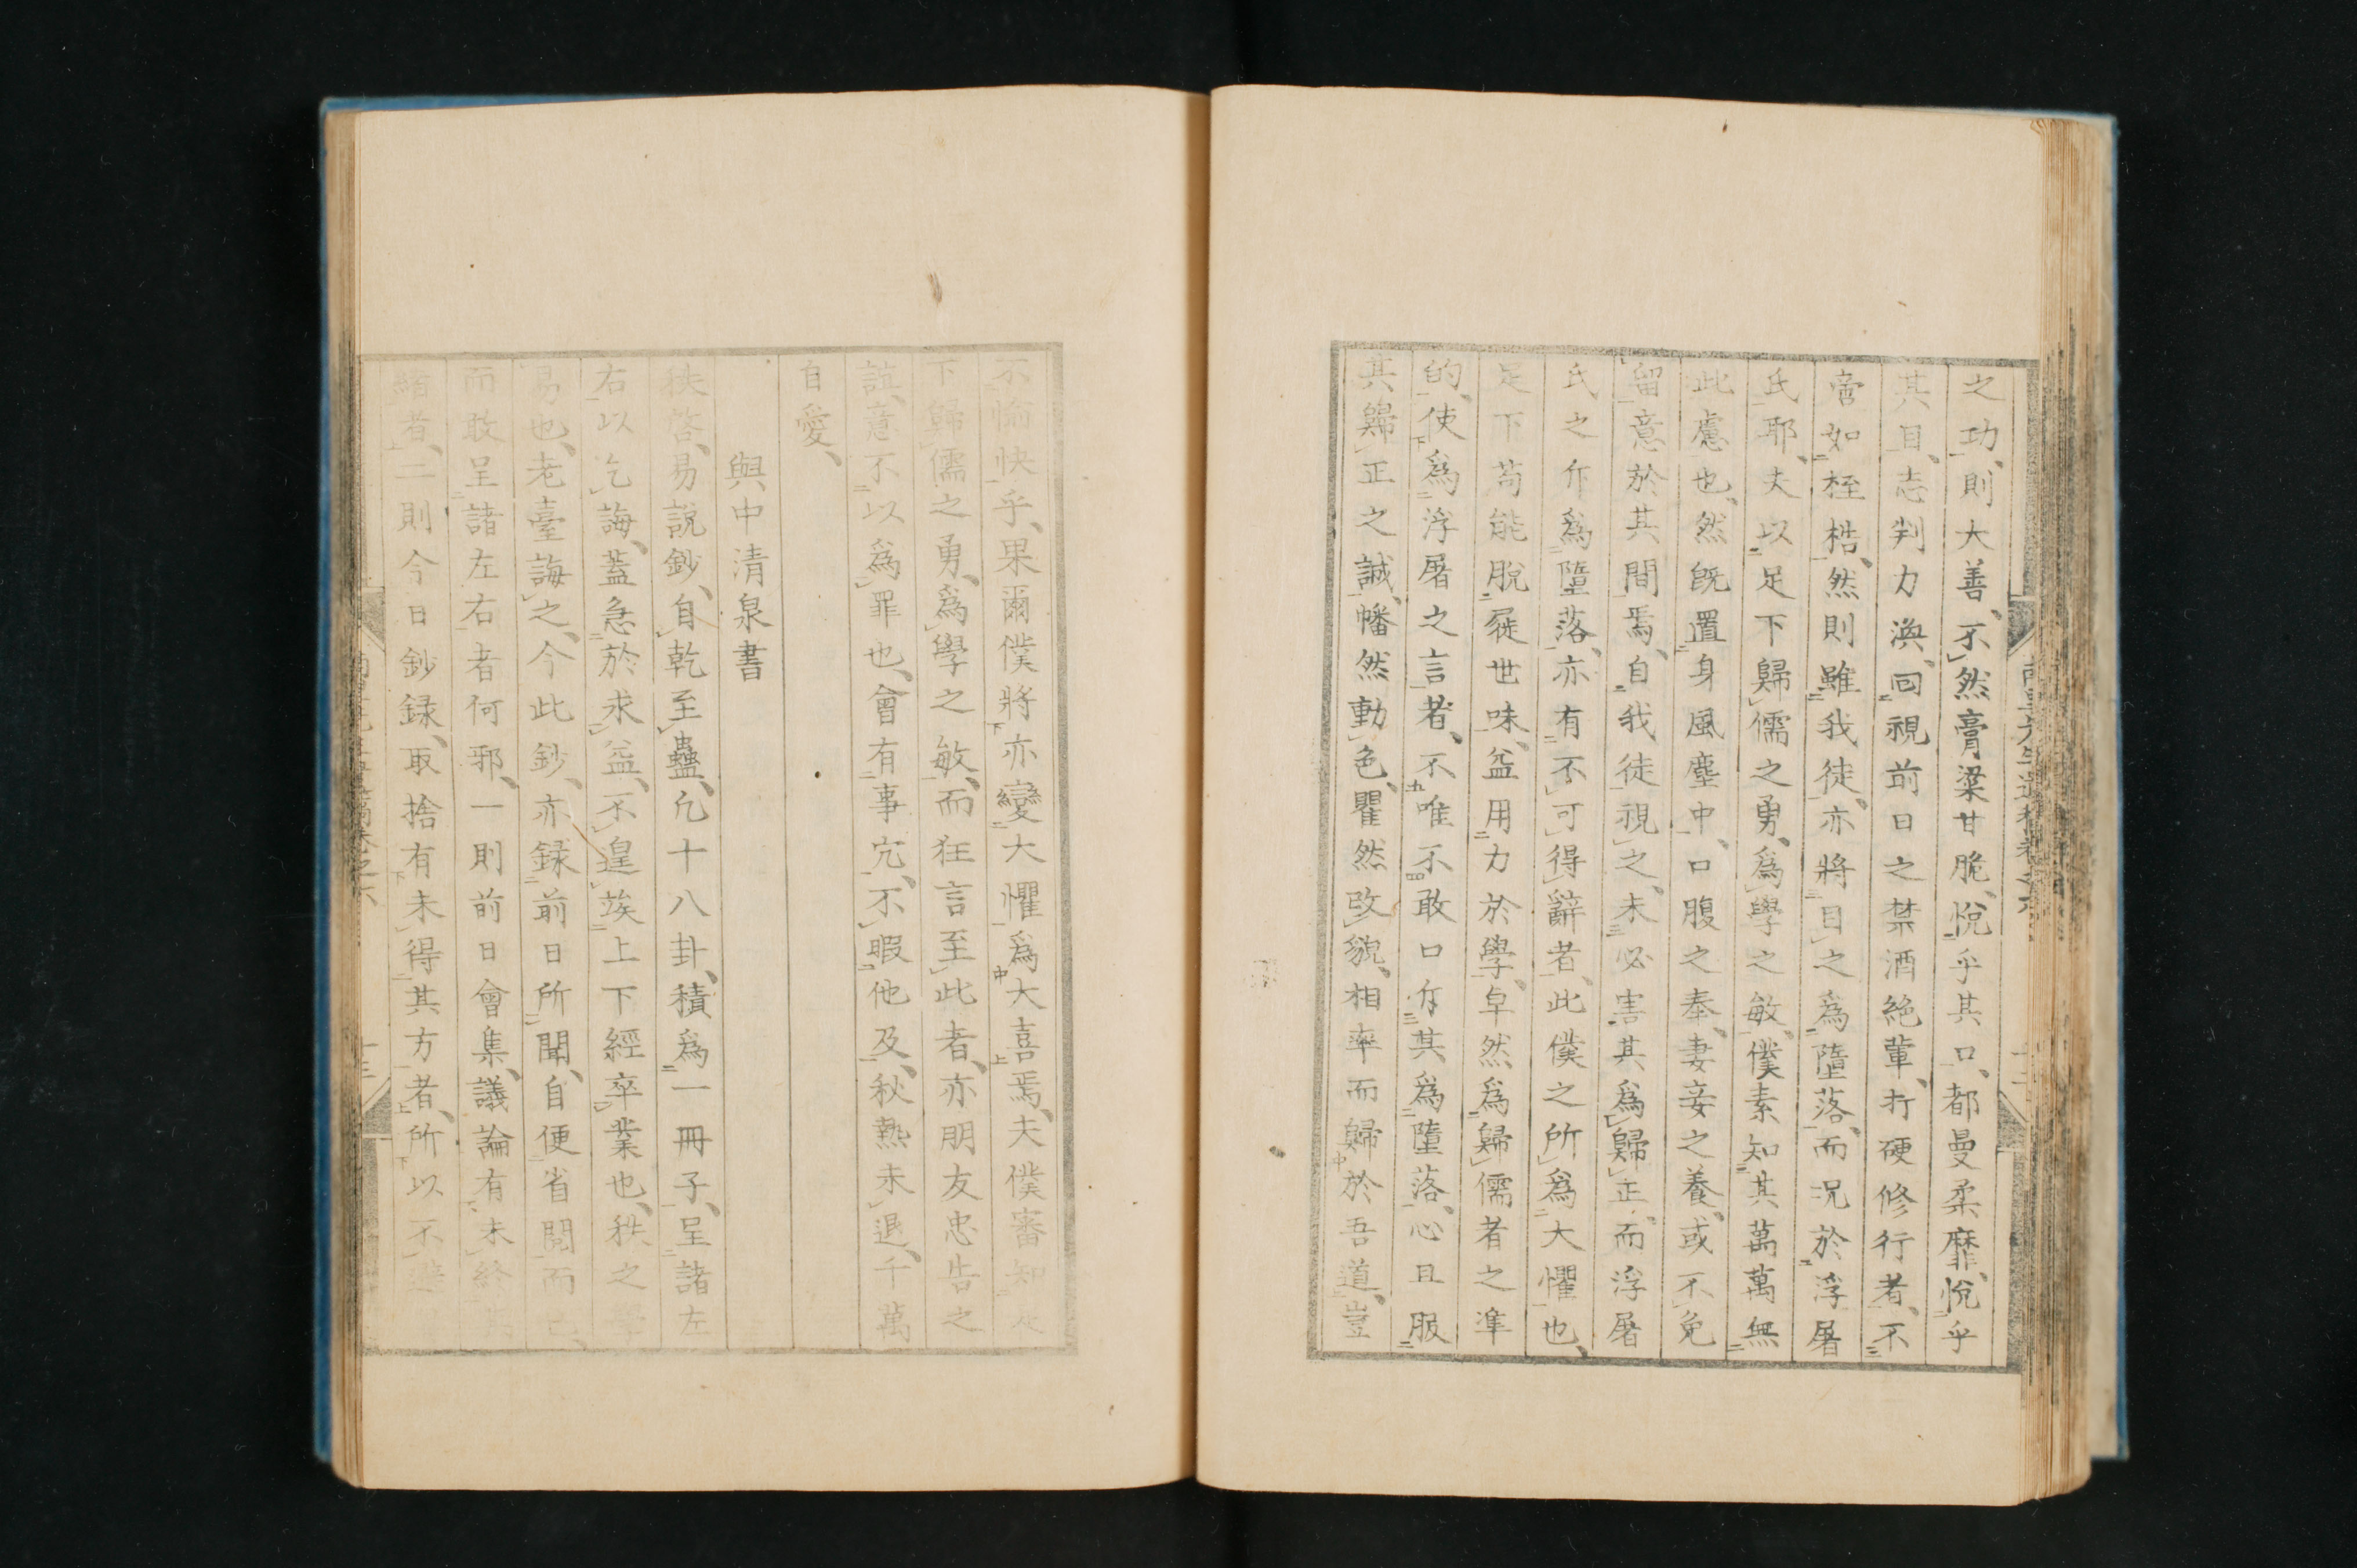 之功、則大善、不然膏粱甘脆、悅乎其口、都曼柔靡、悅乎
其目、志判力渙、回視前日之禁酒絶葷、打硬修行者、不
啻如桎梏、然則雖我徒、亦將目之爲墮落、而况於浮屠
氏耶、夫以足下歸儒之勇、爲學之敏、僕素知其萬萬無
此慮也、然旣置身風塵中、口腹之奉、妻妾之養、或不免
留意於其間焉、自我徒視之、未必害其爲歸正、而浮屠
氏之作爲墮落、亦有不可得辭者、此僕之所爲大懼也、
足下苟能脫屣世味、益用力於學、卓然爲歸儒者之準
的、使爲浮屠之言者、不唯不敢口斥其爲墮落、心且服
其歸正之誠、幡然動色、瞿然改貌、相率而歸於吾道、豈
不愉快乎、果爾僕將亦變大懼爲大喜焉、夫僕審知足
下歸儒之勇、爲學之敏、而狂言至此者、亦朋友忠告之
誼、意不以爲罪也、會有事宂、不暇他及、秋熱未退、千萬
自愛、
與中清泉書
秩啓、易說鈔、自乾至蠱、凡十八卦、積爲一冊子、呈諸左
右以乞誨、蓋急於求益、不遑竢上下經卒業也、秩之學
易也、老臺誨之、今此鈔、亦録前日所聞、自便省閱而已、
而敢呈諸左右者何邪、一則前日會集、議論有未終其
緒者、二則今日鈔録、取捨有未得其方者、所以不避